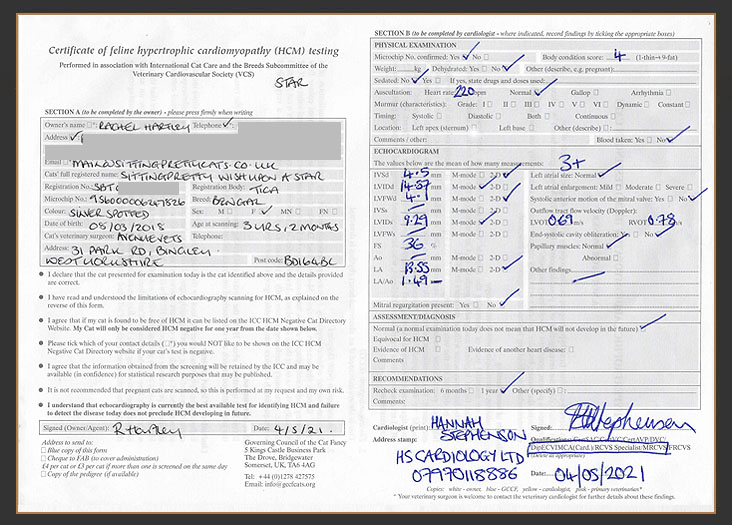 Certificate of feline hypertrophic cardiomyopathy (HCM) testing
Performed in association with International Cat Care and the Breeds Subcommittee of the
Veterinary Cardiovascular Society (VCS)
STAR
SECTION A (to be completed by the owner) - please press firmly when writing
Owner's name □*: RACHEL HARTLEY Telephone ✓*:
Address ✓
Email □ MAIN@SITTINGPRETTYCATS.CO.UK
Cats' full registered name: SITTINGPRETTY WISH UPON A STAR
Registration No.: SBT Registration Body: TICA
Microchip No.: Breed: BENGAL
Colour: SILVER SPOTTED Sex: M □ F ✓ MN □ FN □
Date of birth: 05/03/2018 Age at scanning: 3 YRS, 2 MONTHS
Cat's veterinary surgeon: Telephone:
Address: 31 PARK RD, BINGLEY,
WEST YORKSHIRE Post code: BD16 4BL
● I declare that the cat presented for examination today is the cat identified above and the details provided
are correct.
● I have read and understood the limitations of echocardiography scanning for HCM, as explained on the
reverse of this form.
● I agree that if my cat is found to be free of HCM it can be listed on the ICC HCM Negative Cat Directory
Website. My Cat will only be considered HCM negative for one year from the date shown below.
● Please tick which of your contact details (□*) you would NOT like to be shown on the ICC HCM
Negative Cat Directory website if your cat's test is negative.
● I agree that the information obtained from the screening will be retained by the ICC and may be
available (in confidence) for statistical research purposes that may be published.
● It is not recommended that pregnant cats are scanned, so this is performed at my request and my own risk.
● I understand that echocardiography is currently the best available test for identifying HCM and failure
to detect the disease today does not preclude HCM developing in future.
Signed (Owner/Agent): RHartley Date: 4/5/21.
Address to send to:
□ Blue copy of this form
□ Cheque to FAB (to cover administration)
£4 per cat or £3 per cat if more than one is screened on the same day
□ Copy of the pedigree (if available)
Governing Council of the Cat Fancy
5 Kings Castle Business Park
The Drove, Bridgewater
Somerset, UK, TA6 4AG
Tel: +44 (0)1278 427575
Email: info@gccfcats.org
SECTION B (to be completed by cardiologist - where indicated, record findings by ticking the appropriate boxes)
PHYSICAL EXAMINATION
Microchip No. confirmed: Yes ✓ No □ Body condition score: 4 (1-thin→9-fat)
Weight: kg Dehydrated: Yes □ No ✓ Other (describe, e.g. pregnant):
Sedated: No ✓ Yes □ If yes, state drugs and doses used:
Auscultation: Heart rate: 220 bpm Normal ✓ Gallop □ Arrhythmia □
Murmur (characteristics): Grade: I □ II □ III □ IV □ V □ VI □ Dynamic □ Constant □
Timing: Systolic □ Diastolic □ Both □ Continuous □
Location: Left apex (sternum) □ Left base □ Other (describe) □
Comments / other: Blood taken: Yes □ No ✓
ECHOCARDIOGRAM
The values below are the mean of how many measurements: 3+
IVSd 4.5 mm M-mode □ 2-D ✓ Left atrial size: Normal ✓
LVIDd 14.57 mm M-mode ✓ 2-D □ Left atrial enlargement: Mild □ Moderate □ Severe □
LVFWd 4.1 mm M-mode □ 2-D ✓ Systolic anterior motion of the mitral valve: Yes □ No ✓
IVSs mm M-mode □ 2-D □ Outflow tract flow velocity (Doppler):
LVIDs 9.29 mm M-mode ✓ 2-D □ LVOT 0.69 m/s RVOT 0.78 m/s
LVFWs mm M-mode □ 2-D □ End-systolic cavity obliteration: Yes □ No ✓
FS 36 % Papillary muscles: Normal ✓
Ao mm M-mode □ 2-D □ Abnormal □
LA 13.55 mm M-mode □ 2-D ✓ Other findings:
LA/Ao 1.49
Mitral regurgitation present: Yes □ No ✓
ASSESSMENT/DIAGNOSIS
Normal (a normal examination today does not mean that HCM will not develop in the future) ✓
Equivocal for HCM □
Evidence of HCM □ Evidence of another heart disease: □
Comments
RECOMMENDATIONS
Recheck examination: 6 months □ 1 year ✓ Other (specify) □:
Comments:
Cardiologist (print): HANNAH STEPHENSON Signed: HStephenson
Address stamp: HS CARDIOLOGY LTD
07970118886
DipECVIMCA(Card.)/RCVS Specialist/MRCVS/FRCVS
(Delete as appropriate)
Date: 04/05/2021
Copies: white - owner, blue - GCCF, yellow - cardiologist, pink - primary veterinarian*
* Your veterinary surgeon is welcome to contact the veterinary cardiologist for further details about these findings.